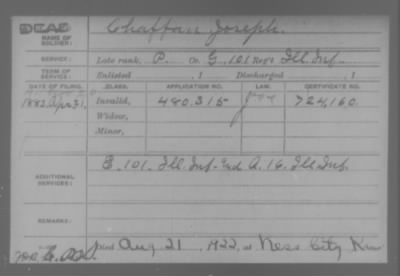 DEAD
NAME OF SOLDIER: Chaffan Joseph.
SERVICE: Late rank, P. Co. G, 101 Reg't Ill Inf.
TERM OF SERVICE: Enlisted , 1 Discharged , 1
DATE OF FILING. CLASS. APPLICATION NO. LAW. CERTIFICATE NO.
1883 Apr 31, Invalid, 480.315 724,160.
Widow,
Minor,
ADDITIONAL SERVICES: E. 101. Ill. Inf. and A. 16. Ill Inf.
REMARKS:
Died Aug 21 1922, at Ness City Kan